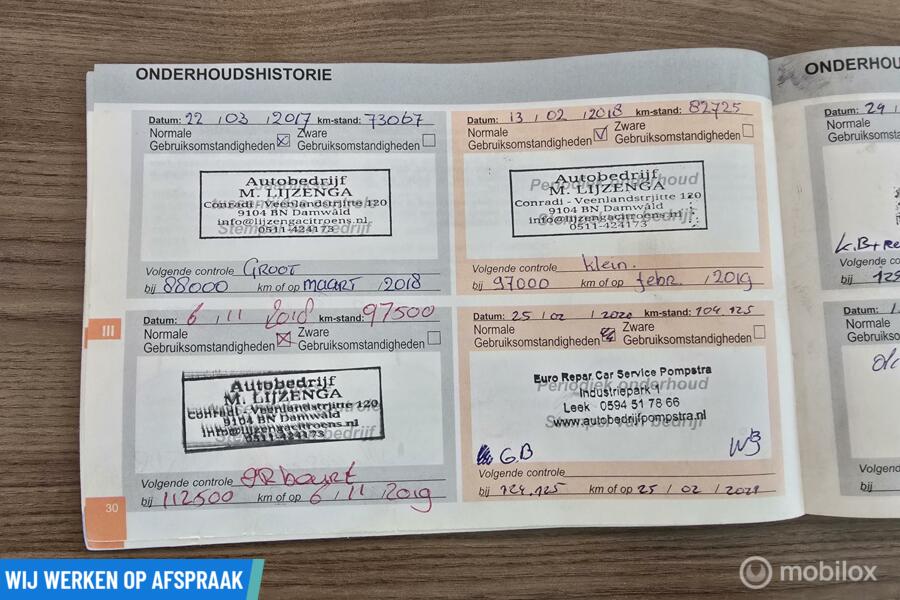 ONDERHOUDSHISTORIE
Datum: 22 / 03 / 2017 km-stand: 73067
Normale Gebruiksomstandigheden Zware Gebruiksomstandigheden
Autobedrijf
M. LIJZENGA
Conradi - Veenlandstrjitte 120
9104 BN Damwâld
info@lijzengacitroens.nl
0511-424173
Volgende controle GROOT
bij 88000 km of op MAART / 2018
Datum: 13 / 02 / 2018 km-stand: 82725
Normale Gebruiksomstandigheden Zware Gebruiksomstandigheden
Periodiek onderhoud
Autobedrijf
M. LIJZENGA
Conradi - Veenlandstrjitte 120
9104 BN Damwâld
info@lijzengacitroens.nl
0511-424173
Volgende controle klein.
bij 97000 km of op febr. / 2019
III
Datum: 6 / 11 2018 km-stand: 97500
Normale Gebruiksomstandigheden Zware Gebruiksomstandigheden
Autobedrijf
M. LIJZENGA
Conradi - Veenlandstrjitte 120
9104 BN Damwâld
info@lijzengacitroens.nl
0511-424173
Volgende controle GR beurt
bij 112500 km of op 6 / 11 / 2019
Datum: 25 / 02 / 2020 km-stand: 104.125
Normale Gebruiksomstandigheden Zware Gebruiksomstandigheden
Euro Repar Car Service Pompstra
Periodiek onderhoud
Industriepark 1
Leek 0594 51 78 66
www.autobedrijfpompstra.nl
GB
Volgende controle
bij 124.125 km of op 25 / 02 / 2021
30
ONDERHOU
Datum: 29 /
Normale
Gebruiksomst
K.B + Re
Volgende co
bij 129
Datum:
Normale
Gebruiksomst
Volgende
bij
WIJ WERKEN OP AFSPRAAK
mobilox